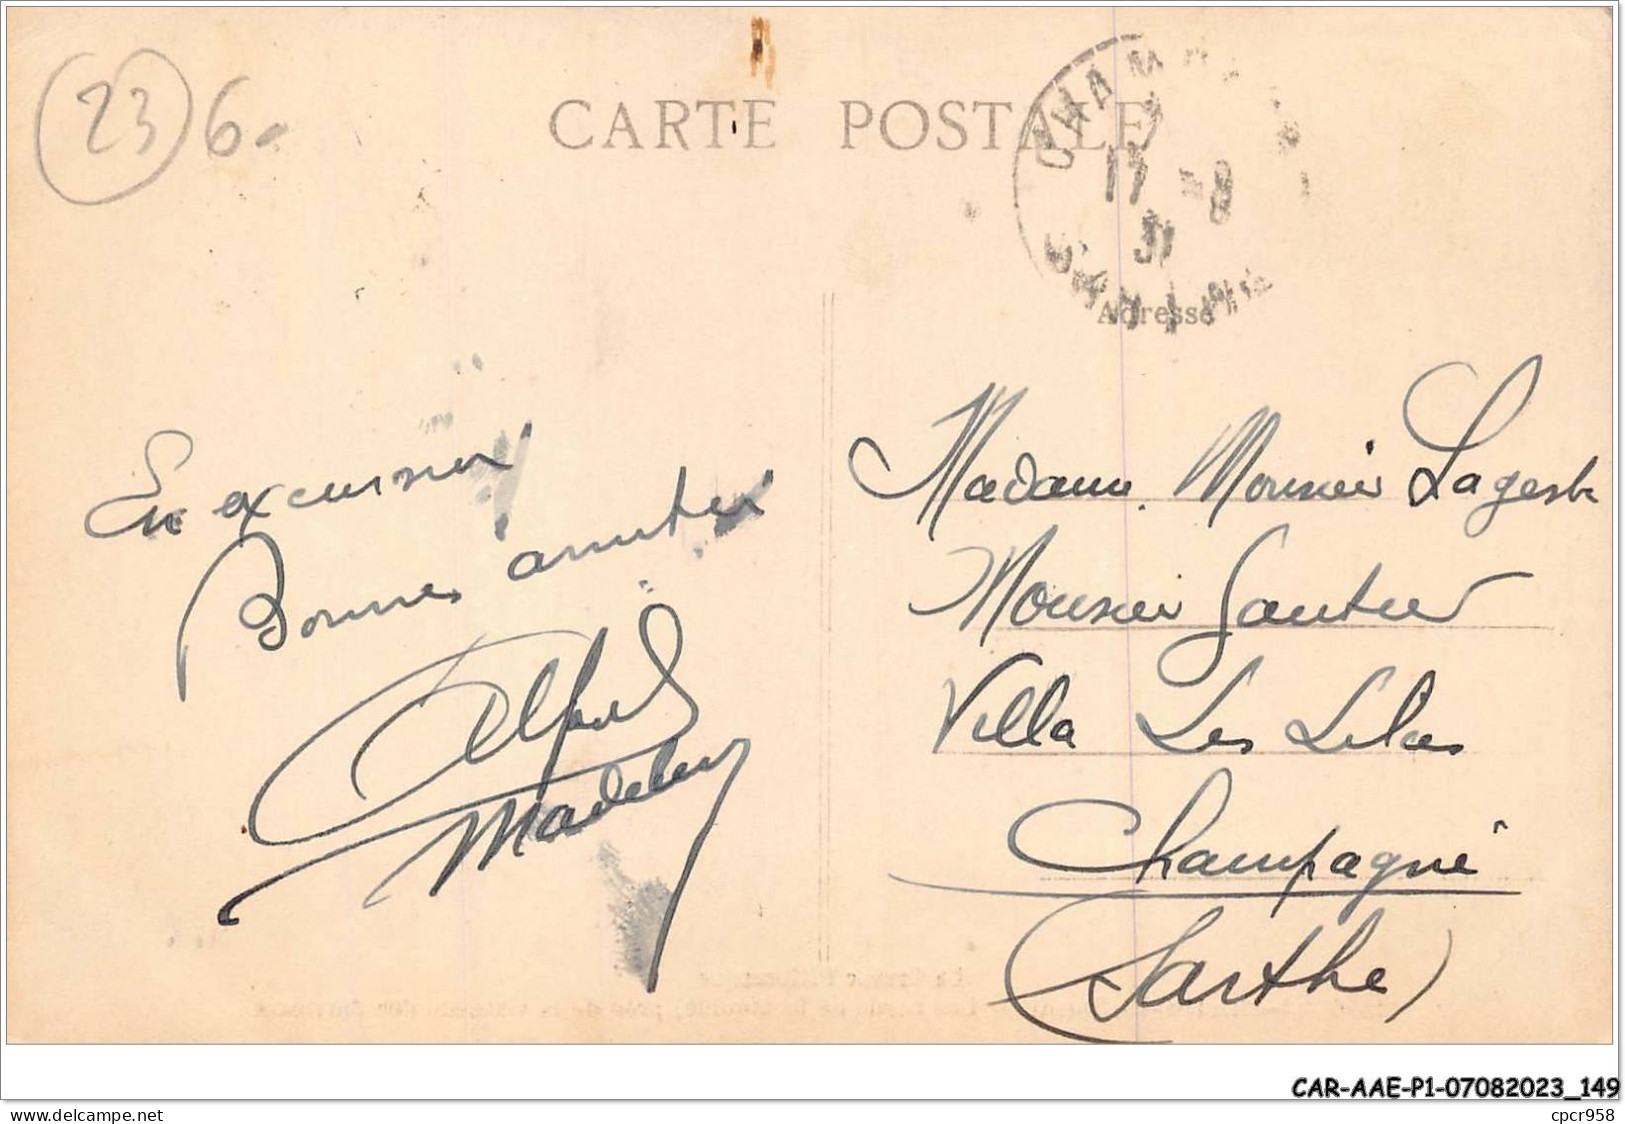 23 6
CARTE POSTALE
17 -8
31
Adresse
En excursion
Bonnes amitiés
Alfred
Madeleine
Madame. Monsieur Lageste
Monsieur Gautier
Villa Les Lilas
Champagné
(Sarthe)
CAR-AAE-P1-07082023_149
www.delcampe.net
cpcr958